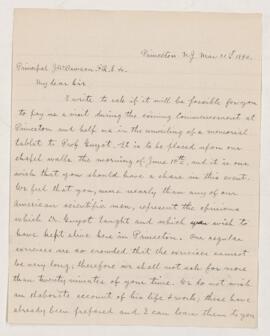 Princeton. N.J. Mar. 21st 1890.
Principal J. Wm Dawson. F.R.S. &c.
My dear Sir.
I write to ask if it will be possible for you
to pay us a visit during the coming commencement at
Princeton and help us in the unveiling of a memorial
tablet to Prof. Guyot. It is to be placed upon our
chapel walls the morning of June 10th, and it is our
wish that you should have a share in this event.
We feel that you, more nearly than any of our
american scientific men, represent the opinions
which Dr. Guyot taught and which we wish to
have kept alive here in Princeton. Our regular
exercises are so crowded that the exercises cannot
be very long, therefore we shall not ask for more
than twenty minutes of your time. We do not wish
an elaborate account of his life & work, these have
already been prepared and I can loan them to you